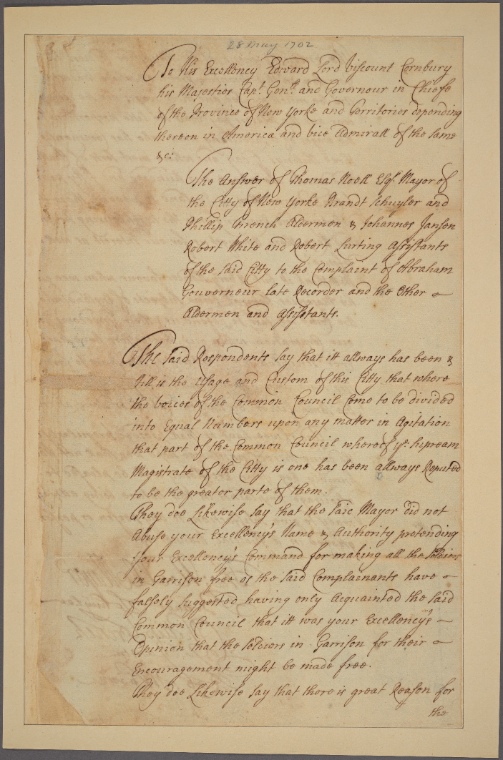 28 May 1702
To His Excellency Edward Lord Viscount Cornbury
his Majesties Capt. Genll. and Governour in Chiefe
of the Province of New Yorke and Territories depending
thereon in America and Vice Admirall of the same
&c:
The Answer of Thomas Noell Esqr. Mayor of
the Citty of New Yorke Brandt Schuyler and
Phillip French Aldermen & Johannes Jansen
Robert White and Robert Lurting Assistants
of the said Citty to the Complaint of Abraham
Gouverneur late Recorder and the Other
Aldermen and Assistants.
The Said Respondents Say that itt allways has been &
still is the Usage and Custom of this Citty that where
the voices of the Common Council Come to be divided
into Equal Numbers upon any matter in Agitation
that part of the Common Council whereof ye. Supream
Magistrate of the Citty is one has been allways Reputed
to be the greater parte of them.
They doe Likewise Say that the Said Mayor did not
Abuse your Excellency's Name & Authority pretending
Your Excellency's Command for making all the Soldiers
in Garrison free as the Said Complainants have
falsely Suggested having only Acquainted the Said
Common Council that itt was your Excellency's
Opinion that the Soldiers in Garrison for their
Encouragement might be made free.
They doe Likewise Say that there is great Reason for
the